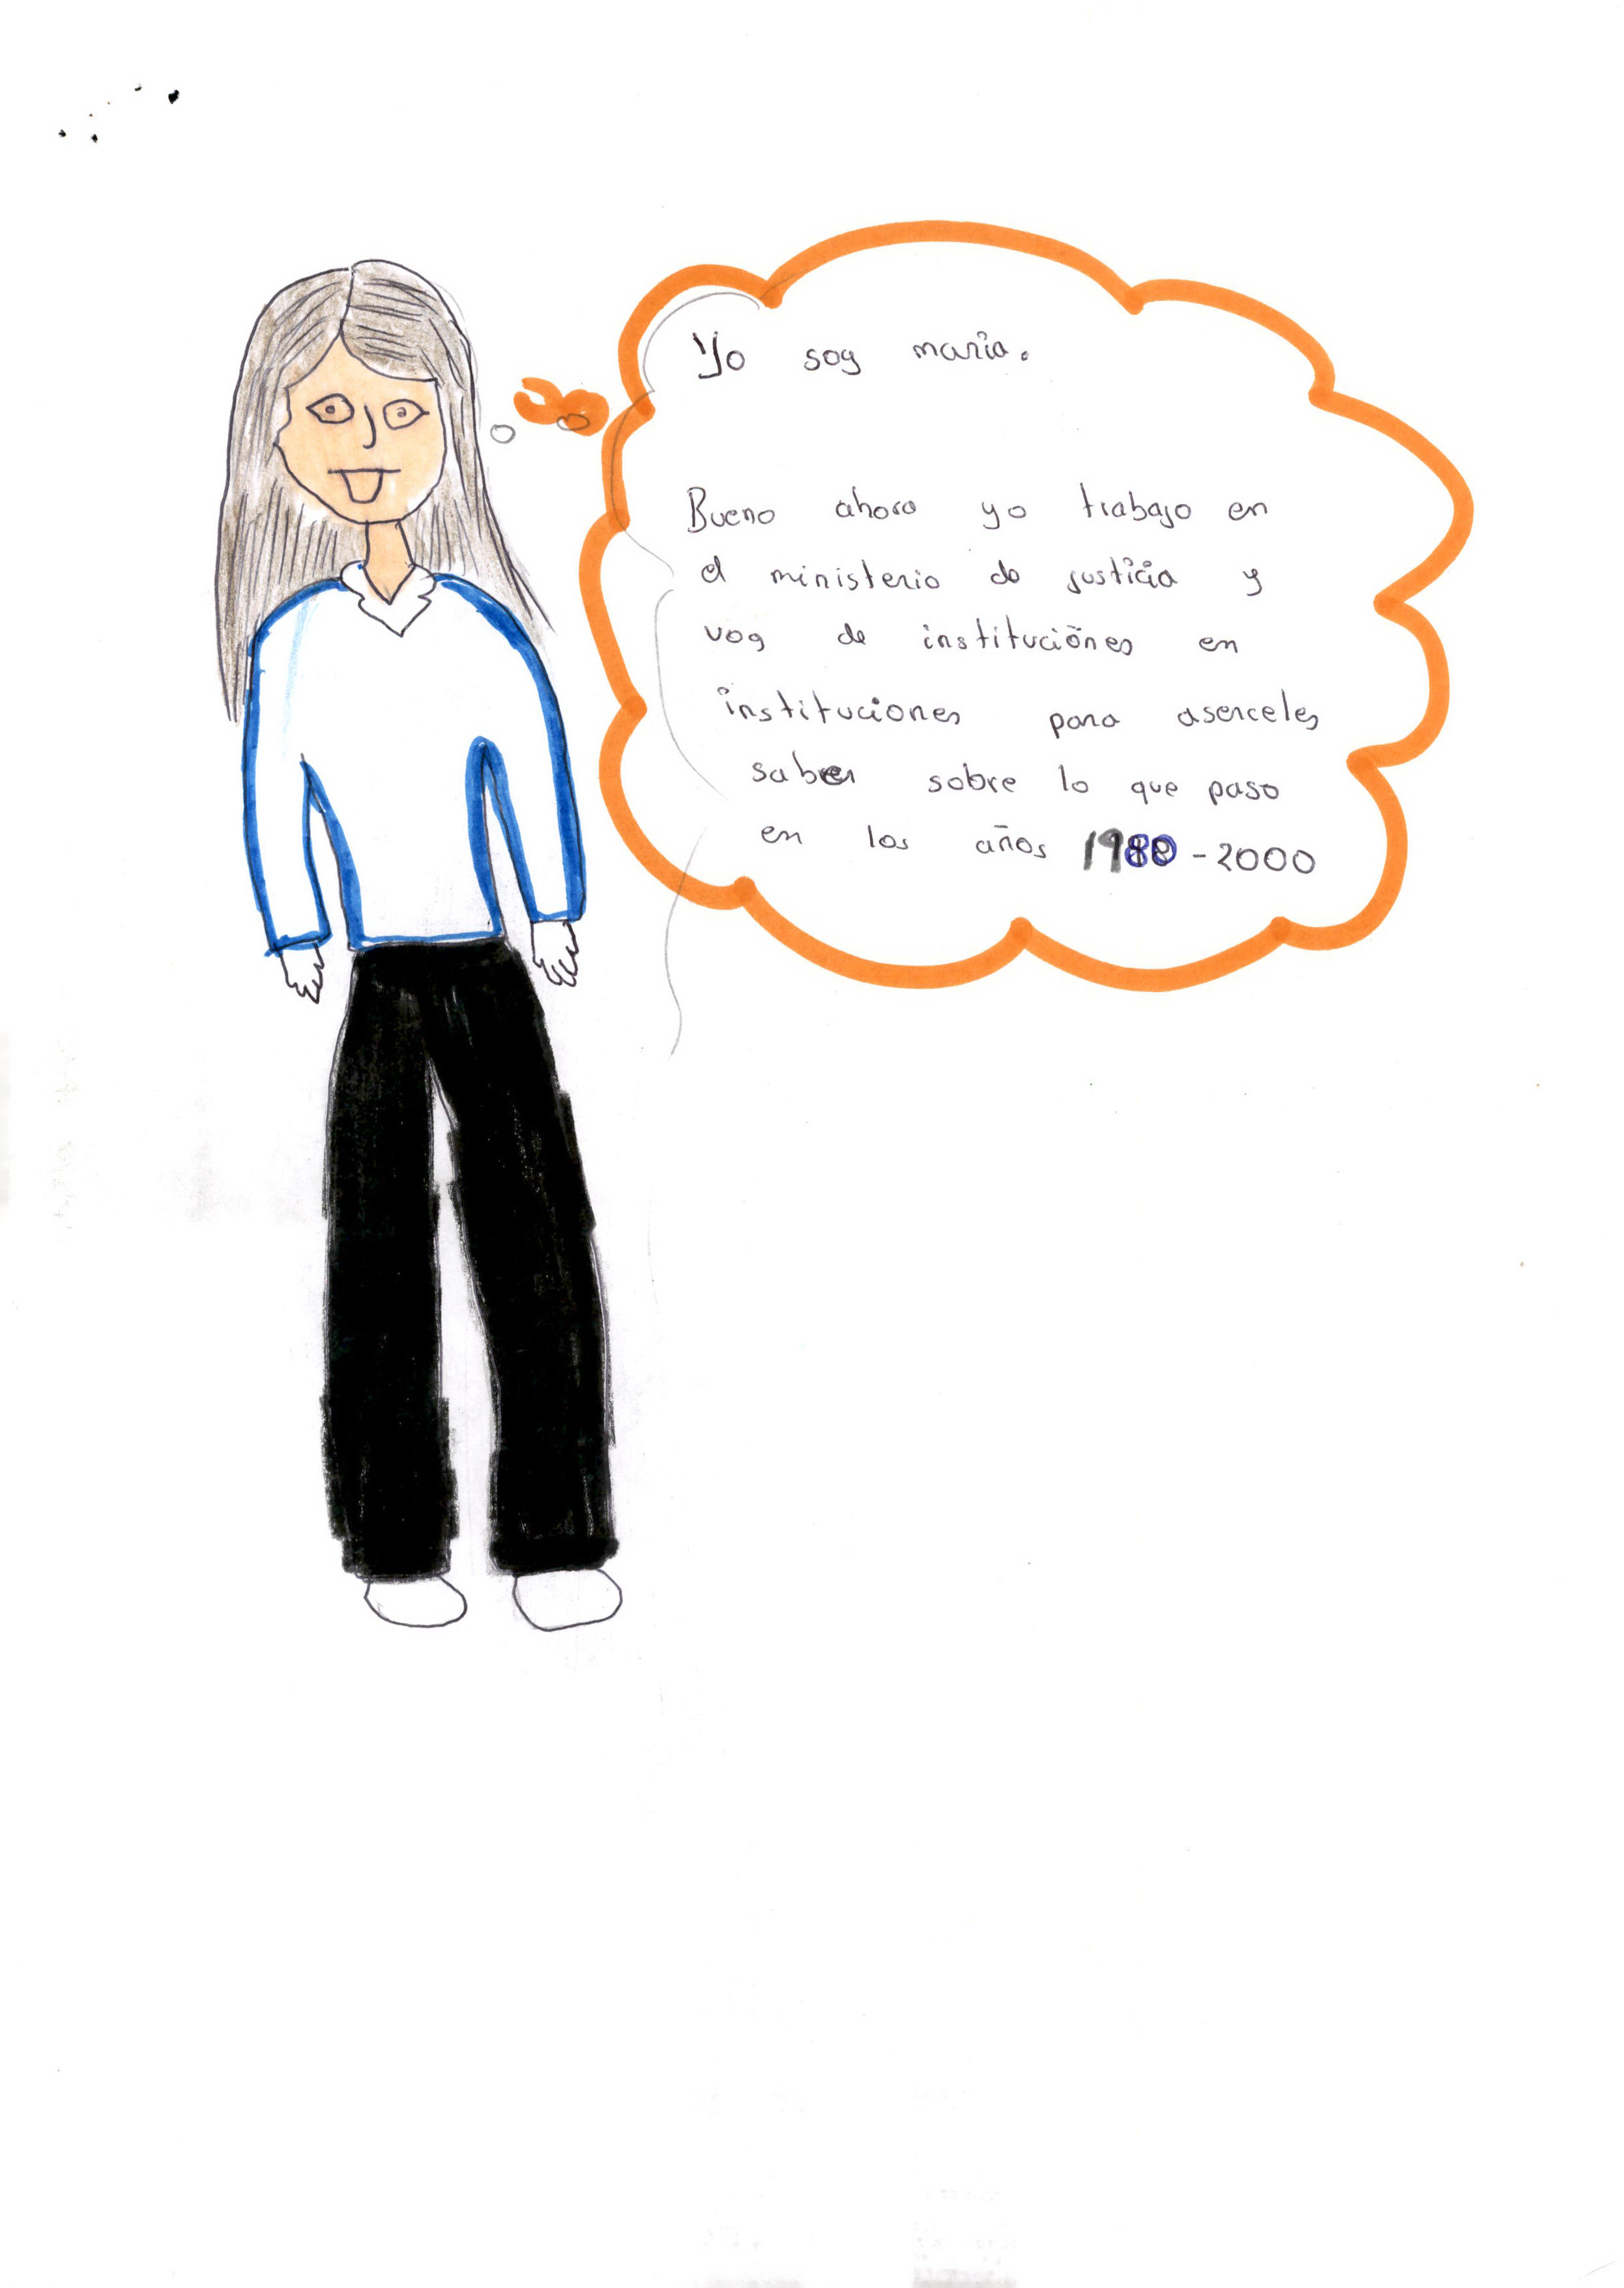 Yo soy maria.
Bueno ahora yo trabajo en
el ministerio de justicia y
voy de instituciónes en
instituciones para aserceles
saber sobre lo que paso
en los años 1980 - 2000